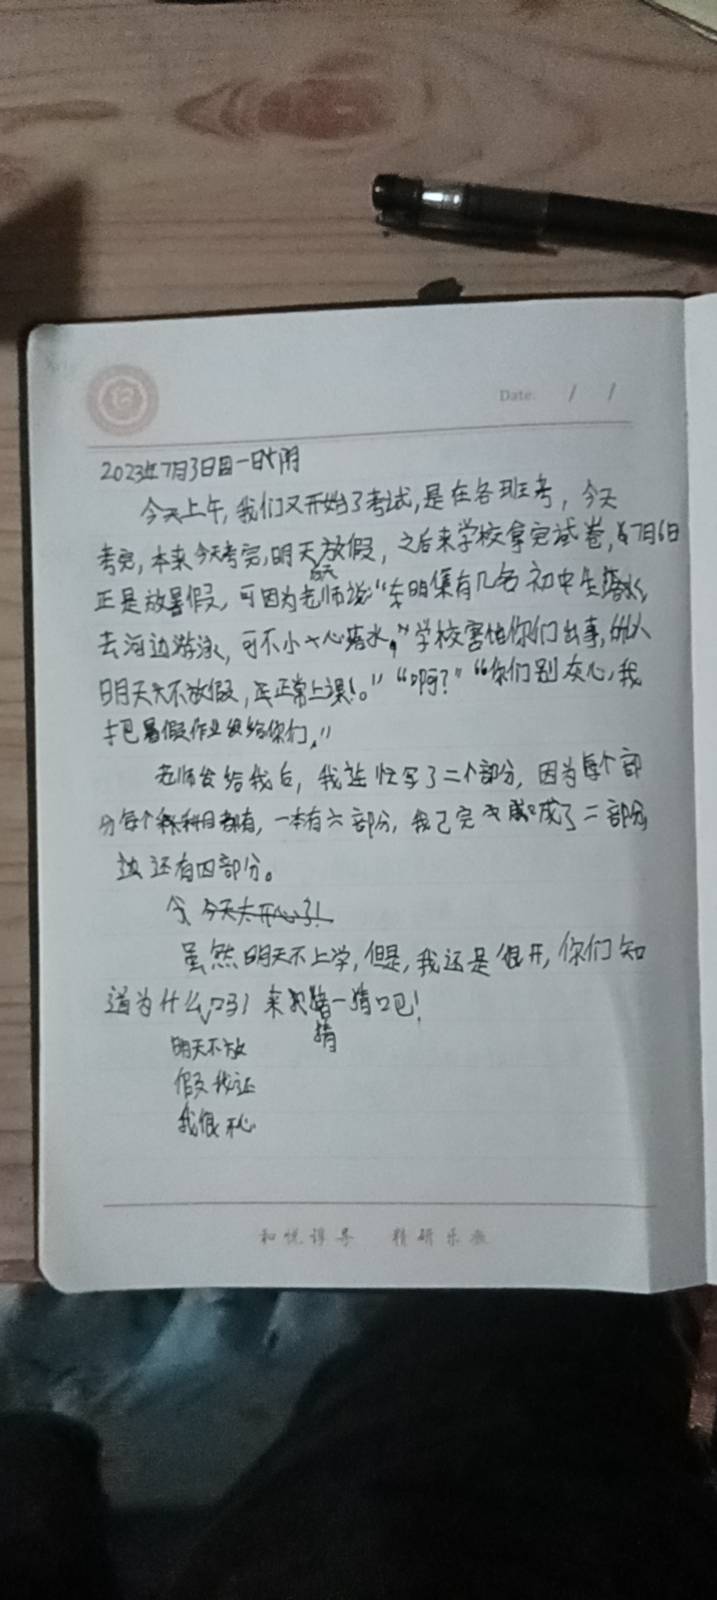 Date: / /
2023年7月3日周一 时阴
今天上午,我们又开始了考试,是在各班考,今天
考完,本来今天考完,明天放假,之后来学校拿完试卷,7月6日
正是放暑假,可因为老师说:“东明集有几名初中生落水,
去河边游泳,可不小心落水,”学校害怕你们出事,所以
明天不放假,正常上课!。”“啊?”“你们别灰心,我
把暑假作业发给你们,”
老师发给我后,我连忙写了二个部分,因为每个部
分每个科目都有,一本有六部分,我已完成了二部分
还有四部分。
今天太开心了!
虽然明天不上学,但是,我还是很开,你们知
道为什么吗!来猜一猜吧!
猜
明天不放
假我还
我很开心
和悦谆善 精研乐教